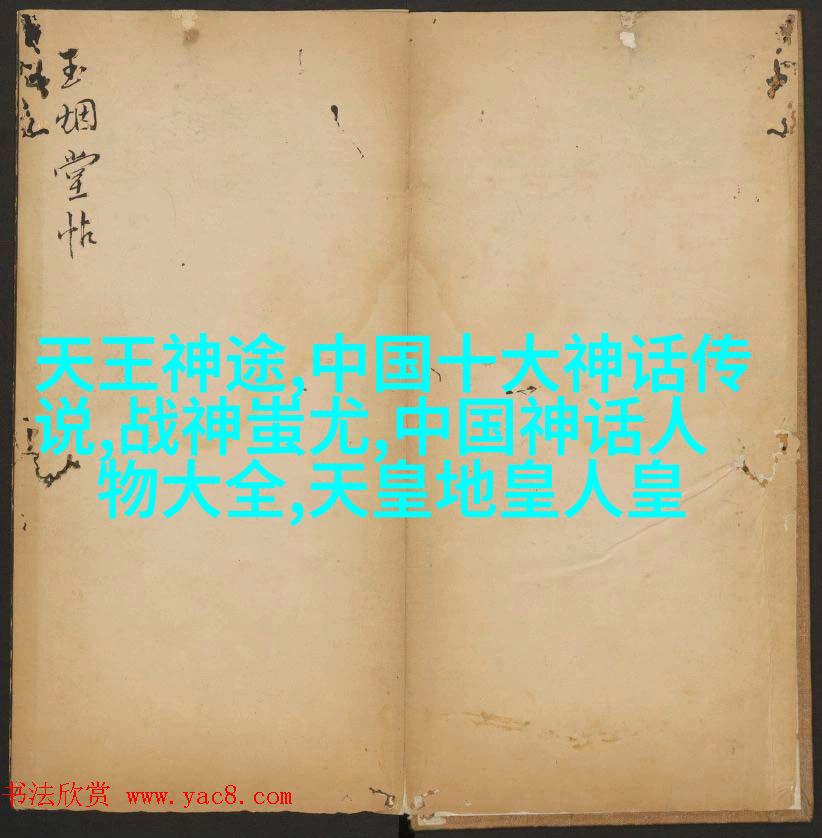 玉烟堂帖
天王神途,中国十大神话传
说,战神蚩尤,中国神话人
物大全,天皇地皇人皇
书法欣赏 www.yac8.com